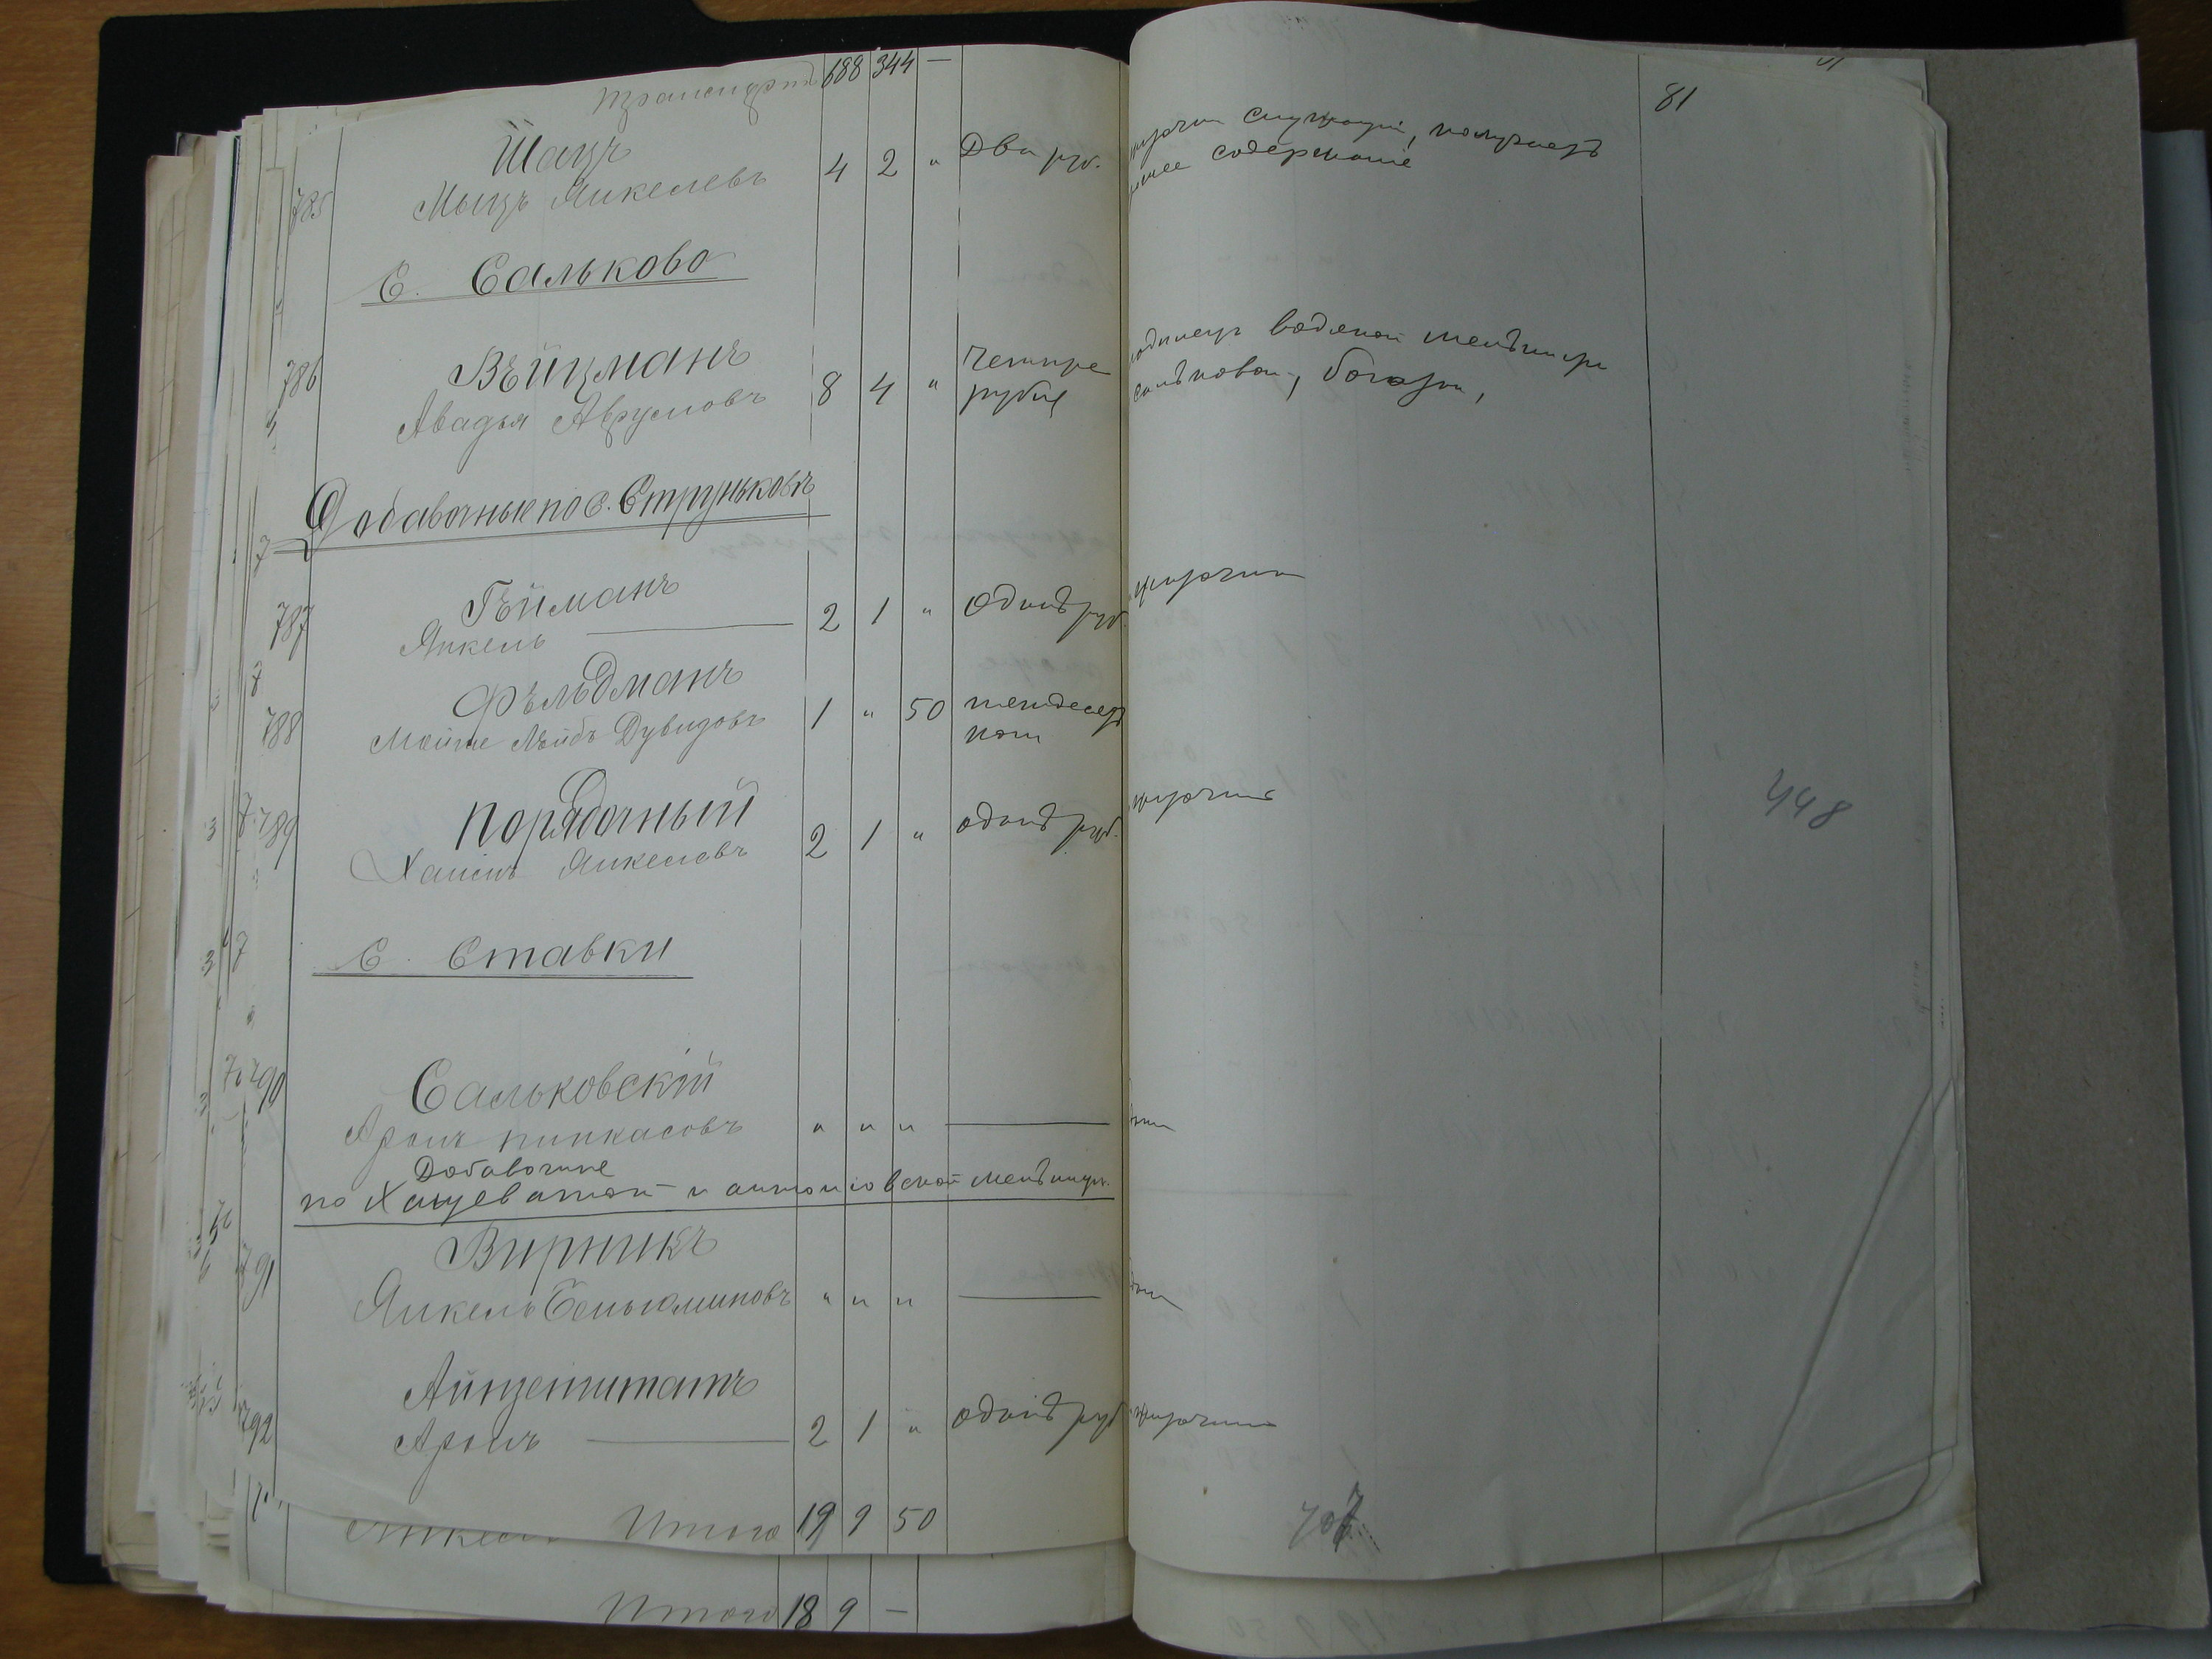 Транспортъ 688 344 —
81
785 Шацъ
Мыцъ Янкелевъ 4 2 " Два руб. служащий, получаетъ
содержаніе
С. Сальково
786 Вѣйцманъ
Авадья Аврумовъ 8 4 " Четыре рубля водяной мельницы
Сальковой, богатый,
Добавочные по с. Струньковъ
787 Гейманъ
Янкель 2 1 " Одинъ руб.
788 Фѣльдманъ
Мойше Лейбъ Дувидовъ 1 " 50 пятдесятъ
коп
789 Порядочный
Хаимъ Янкелевъ 2 1 " одинъ руб.
448
С. Ставки
790 Сальковскій
Аронъ Пинкасовъ " " "
Добавочные
по Хащеватой и антоновской мельницѣ
791 Вирникъ
Янкель Беньюминовъ " " "
792 Айнзенштатъ
Аронъ 2 1 " одинъ руб
Итого 19 9 50
Итого 18 9 —